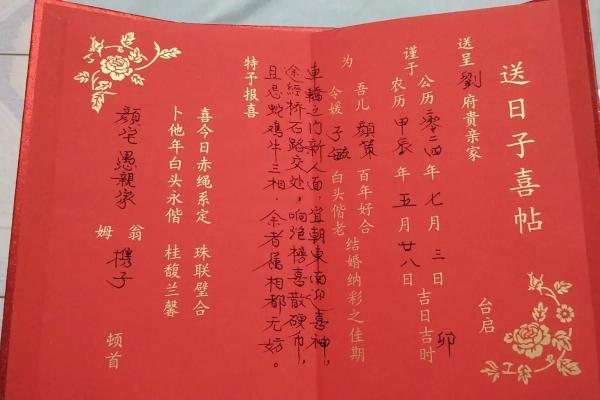 送日子喜帖
送呈 劉 府贵亲家 台启
谨于 公历 零二四 年 七 月 三 日 吉日吉时 卯
农历 甲辰 年 五 月 廿八 日
为 吾儿 顏策 百年好合 结婚纳彩之佳期
令媛 子敏 白头偕老
車轎之门新人面,宜朝東面迎喜神,
途经桥石路交处,响炮榜喜散硬币,
且忌蛇鸡牛三相.余者属相都无妨。
特予报喜
喜今日赤绳系定 珠联璧合
卜他年白头永偕 桂馥兰馨
顏宅愚親家 翁 姆 携子 顿首